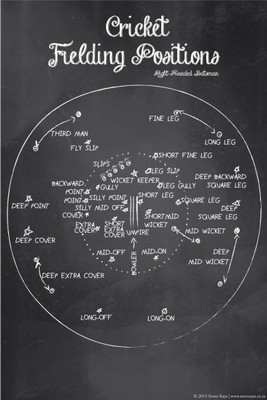 Cricket
Fielding Positions
Right-Handed Batsman
FINE LEG
THIRD MAN
LONG LEG
FLY SLIP
SLIPS
SHORT FINE LEG
LEG SLIP
WICKET KEEPER
DEEP BACKWARD
SQUARE LEG
BACKWARD
POINT
GULLY
LEG GULLY
POINT
SILLY POINT
SHORT LEG
SQUARE LEG
DEEP POINT
SILLY MID OFF
DEEP
SQUARE LEG
COVER
SHORT MID
WICKET
EXTRA
COVER
SHORT
EXTRA
COVER
UMPIRE
MID WICKET
DEEP COVER
MID-OFF
MID-ON
DEEP
MID WICKET
BOWLER
DEEP EXTRA COVER
LONG-OFF
LONG-ON